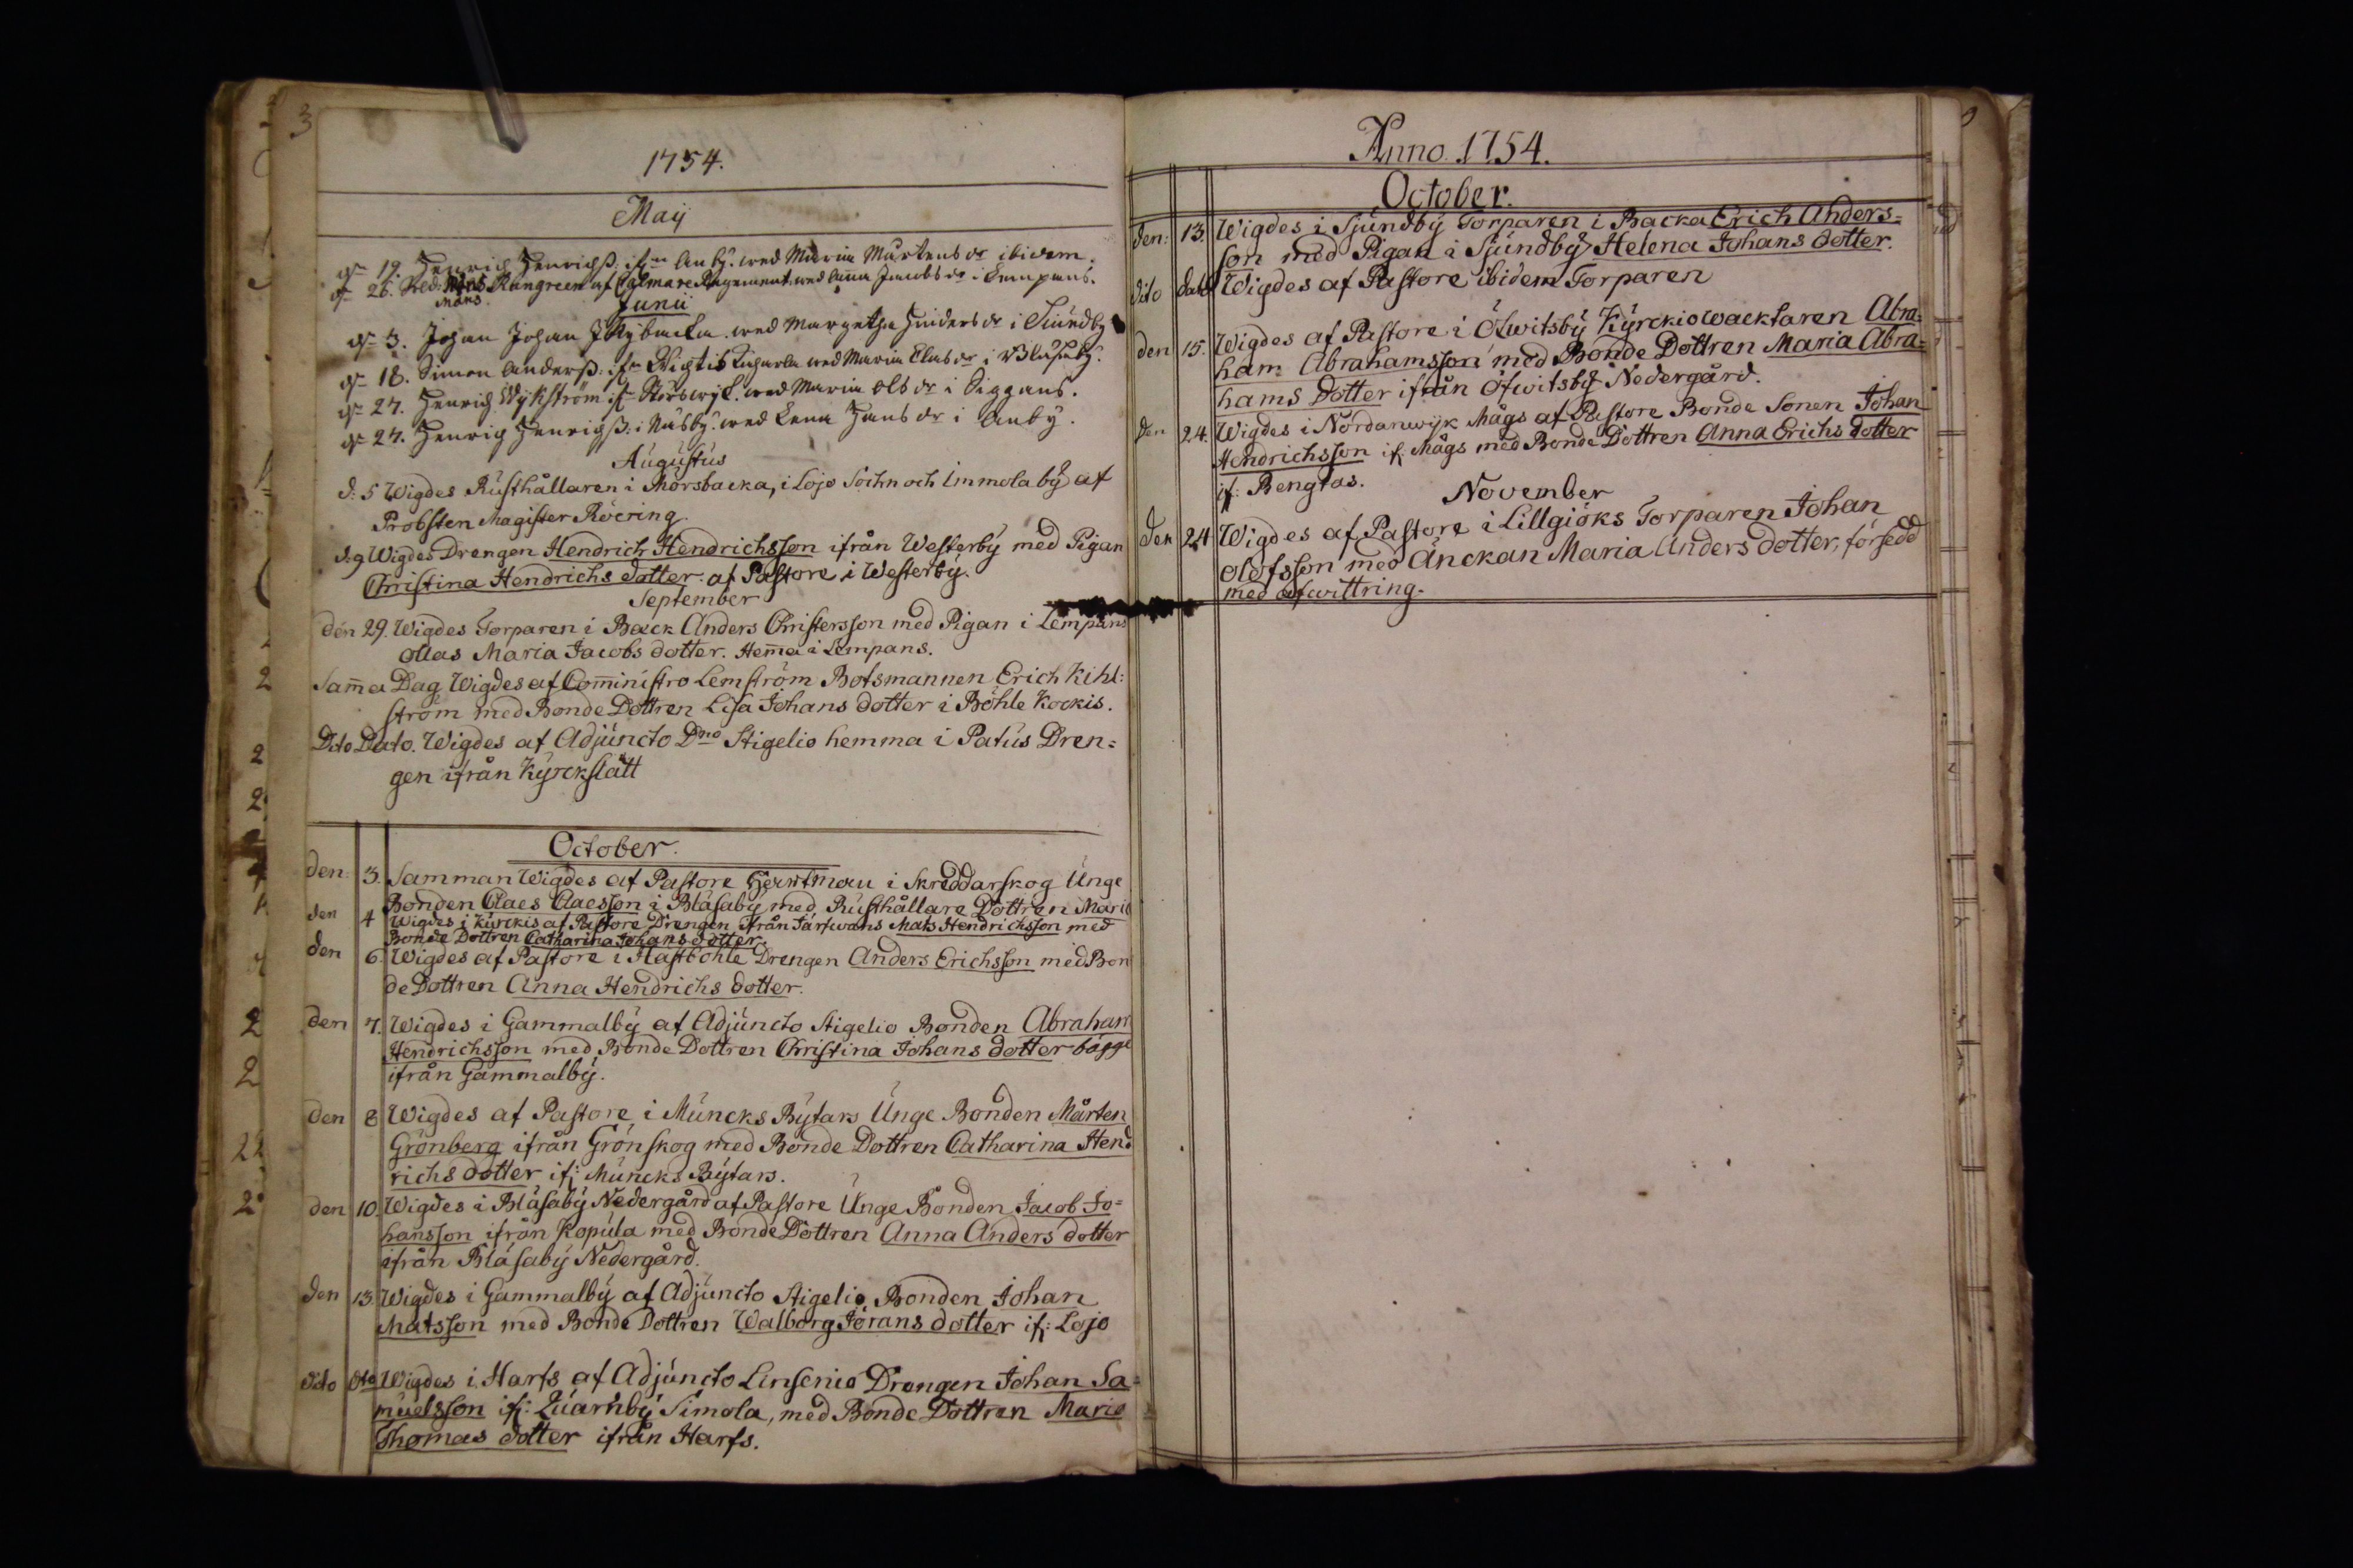 3
1754.
Maij
d. 19. Henrich Henrichss. ifrn Anby. med Maria Mårtens dr ibidem.
d. 26. Sold: Måns Rangreen af Calmare Regement. med Anna Jacobs dr i Lempans.
Måns
Junii
d. 3. Johan Johan Nybacka. med Margetha Hinders dr i Siundby
d. 18. Simon Anderss. ifrn Wichtis med Maria Clas dr i Blåsaby.
d. 24. Henrich Wykström ifrn Störswyk. med Maria Ols dr i Siggans.
d. 24. Henrich Henrichss. i Näsby. med Lena Hans dr i Anby.
Augustus
d: 5 Wigdes Rusthållaren i Morsbacka, i Lojo Sochn och Immola by af
Probsten Magister Roering.
d. 9 Wigdes Drengen Hendrich Hendrichsson ifrån Westerby med Pigan
Christina Hendrichs dotter af Pastore i Westerby.
September
den 29. Wigdes Torparen i Back Anders Christersson med Pigan i Lempans
ollas Maria Jacobs dotter. Hem̄a i Lempans.
Sam̄a Dag Wigdes af Com̄inistro Lemström Botsmannen Erich Kihl:
ström med Bonde Dottren Lisa Johans dotter i Böhle Kockis.
Dito Dato. Wigdes af Adjuncto Dno Stigelio hemma i Patus Dren=
gen ifrån Kyrckslätt
October.
den 3. Samman Wigdes af Pastore Hertman i Skreddarskog Unge
Bonden Claes Claesson i Blåsaby med Rusthållare Dottren Maria
den 4 Wigdes i Kurckis af Pastore Drengen ifrån Järfwans Mats Hendrichsson med
Bonde Dottren Catharina Johans dotter.
den 6. Wigdes af Pastore i Hastböhle Drengen Anders Erichsson med Bon
de Dottren Anna Hendrichs dotter.
den 7. Wigdes i Gammalby af Adjuncto Stigelio Bonden Abraham
Hendrichsson med Bonde Dottren Christina Johans dotter bägge
ifrån Gammalby.
den 8 Wigdes af Pastore i Muncks Bytars Unge Bonden Mårten
Grönberg ifrån Grönskog med Bonde Dottren Catharina Hend
richs dotter if: Muncks Bytars.
den 10. Wigdes i Blåsaby Nedergård af Pastore Unge Bonden Jacob Jo=
hansson ifrån Kopula med Bonde Dottren Anna Anders dotter
ifrån Blåsaby Nedergård.
den 13. Wigdes i Gammalby af Adjuncto Stigelio Bonden Johan
Matsson med Bonde Dottren Walborg Jörans dotter if: Lojo
dito dto Wigdes i Harfs af Adjuncto Linsenio Drengen Johan Sa=
muelsson if: Quarnby Simola, med Bonde Dottren Maria
Thomas dotter ifrån Harfs.
Anno 1754.
October.
den: 13. Wigdes i Sjundby Torparen i Backa Erich Anders=
son med Pigan i Sjundby Helena Johans dotter.
dito dato Wigdes af Pastore ibidem Torparen
den 15. Wigdes af Pastore i Öfwitsby Kyrckiowacktaren Abra=
ham Abrahamsson med Bonde Dottren Maria Abra=
hams Dotter ifrån Öfwitsby Nedergård.
den 24. Wigdes i Nordanwyk Mågs af Pastore Bonde Sonen Johan
Hendrichsson if: Mågs med Bonde Dottren Anna Erichs dotter
if: Bengtas.
November
den 24 Wigdes af Pastore i Lillgiöks Torparen Johan
Olofsson med Änckan Maria Anders dotter, försedd
med afwittring.